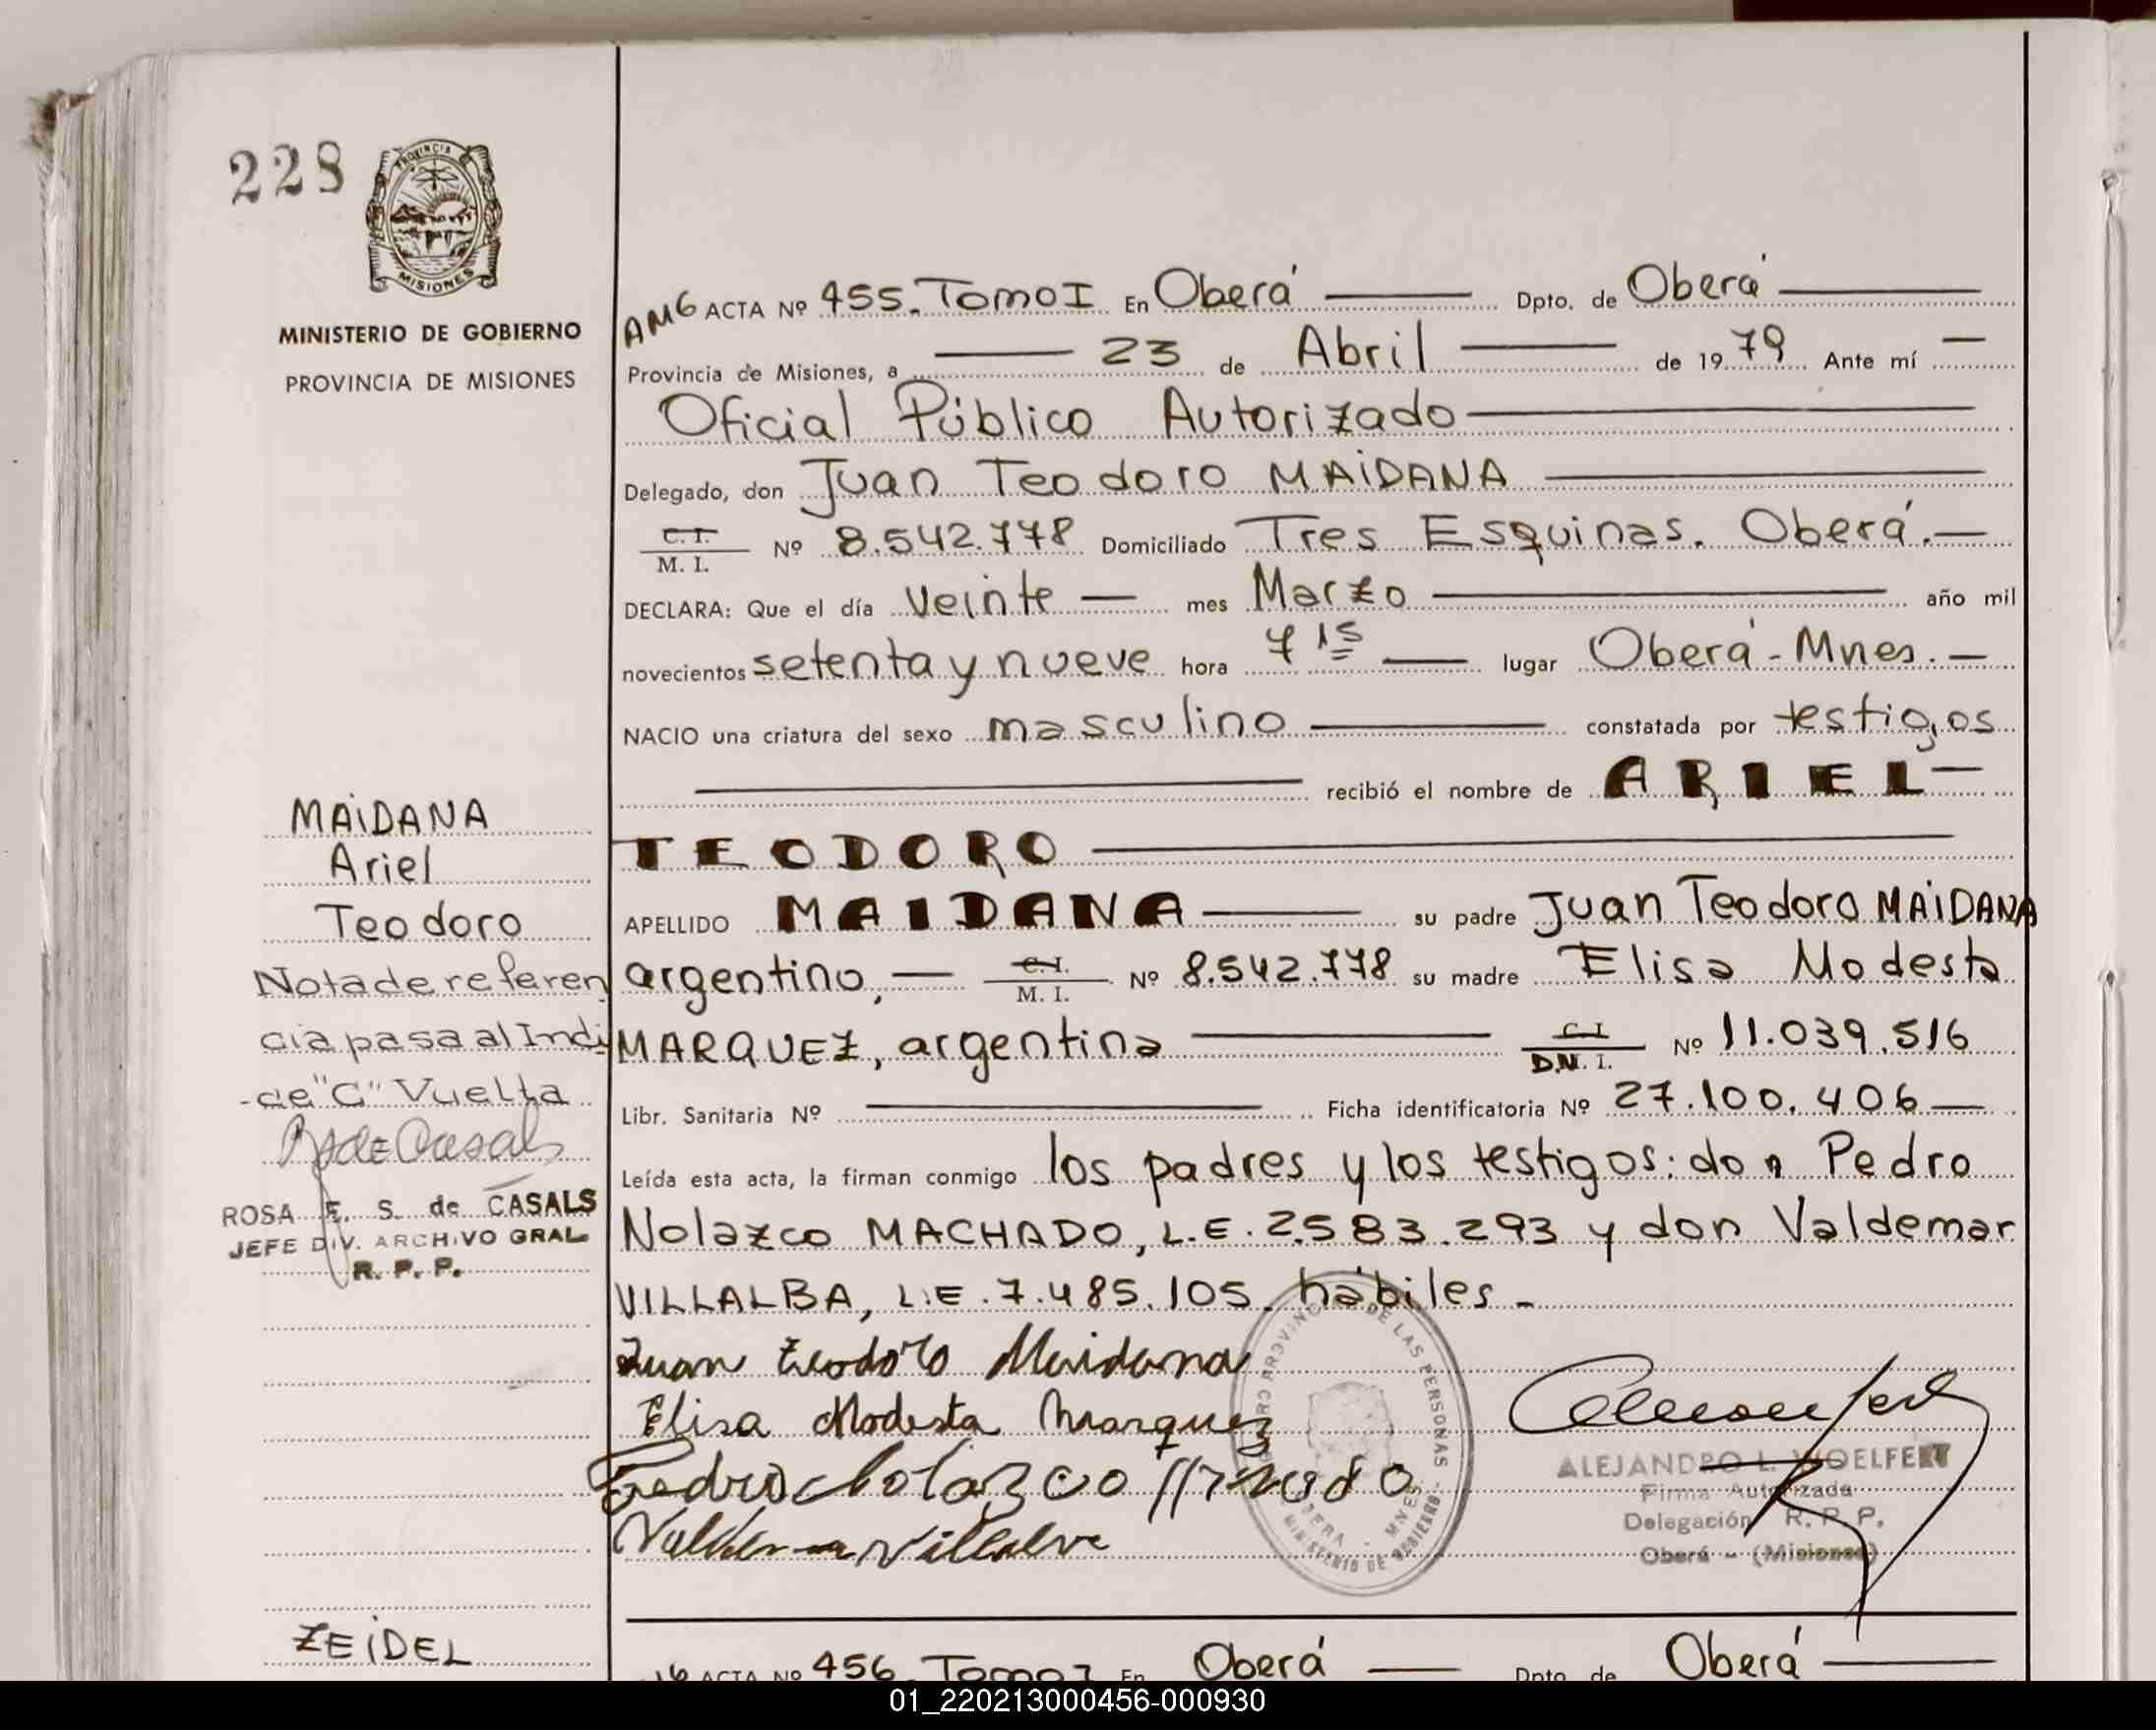 228
PROVINCIA
MISIONES
MINISTERIO DE GOBIERNO
PROVINCIA DE MISIONES
AMG ACTA Nº 455. Tomo I En Oberá Dpto. de Oberá
Provincia de Misiones, a 23 de Abril de 1979 Ante mí
Oficial Público Autorizado
Delegado, don Juan Teodoro MAIDANA
C.I.
M. I. Nº 8.542.778 Domiciliado Tres Esquinas. Oberá.
DECLARA: Que el día veinte mes Marzo año mil
novecientos setenta y nueve hora 7 15 lugar Oberá - Mnes.
NACIO una criatura del sexo masculino constatada por testigos
recibió el nombre de ARIEL
TEODORO
APELLIDO MAIDANA su padre Juan Teodoro MAIDANA
argentino, C.I.
M. I. Nº 8.542.778 su madre Elisa Modesta
MARQUEZ, argentina C I
D.N. I. Nº 11.039.516
Libr. Sanitaria Nº Ficha identificatoria Nº 27.100.406
Leída esta acta, la firman conmigo los padres y los testigos: don Pedro
Nolazco MACHADO, L.E. 2.583.293 y don Valdemar
VILLALBA, L.E. 7.485.105. hábiles -
Juan Teodoro Maidana
Elisa Modesta Marquez
Pedro Nolazco
Villalve
MAIDANA
Ariel
Teodoro
Nota de referen
cia pasa al Indi
-ce "C" Vuelta
R S de Casals
ROSA E. S. de CASALS
JEFE DIV. ARCHIVO GRAL.
R. P. P.
DE LAS PERSONAS
OBERA - MNES.
MINISTERIO DE GOBIERNO
ALEJANDRO L. WOELFERT
Firma Autorizada
Delegación R. P. P.
Oberá - (Misiones)
ZEIDEL
ACTA Nº 456. Tomo I En Oberá Dpto. de Oberá
01_220213000456-000930